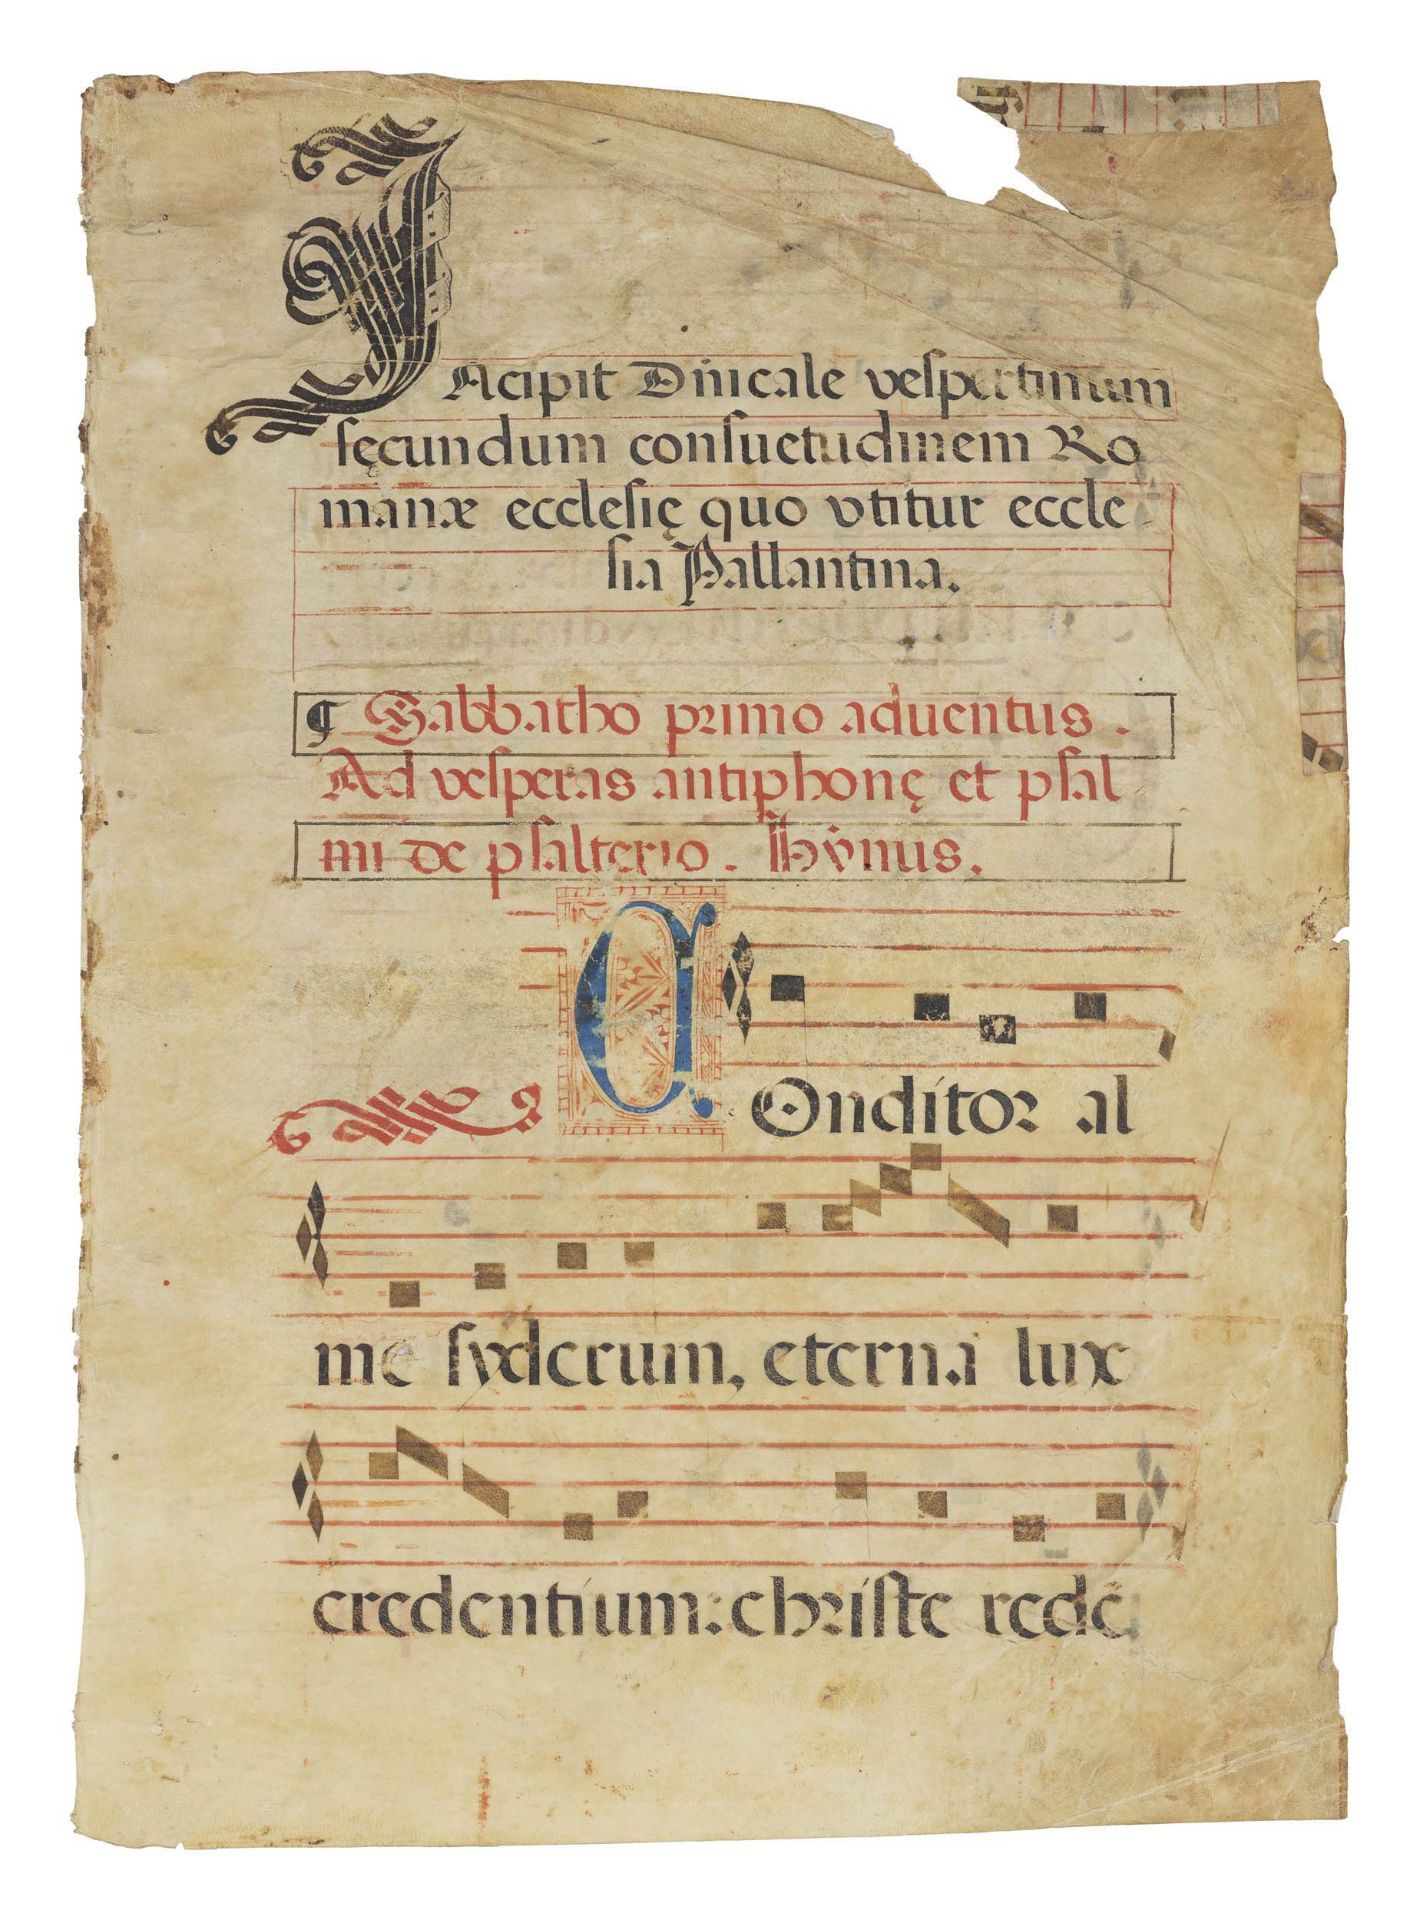 INcipit Dñicale vespertinum
secundum consuetudinem Ro
manæ ecclesię quo vtitur eccle
sia Pallantina.
¶ Sabbatho primo aduentus.
Ad vesperas antiphonę et psal
mi de psalterio. Hẏnus.
COnditor al
me syderum, eterna lux
credentium: christe rede